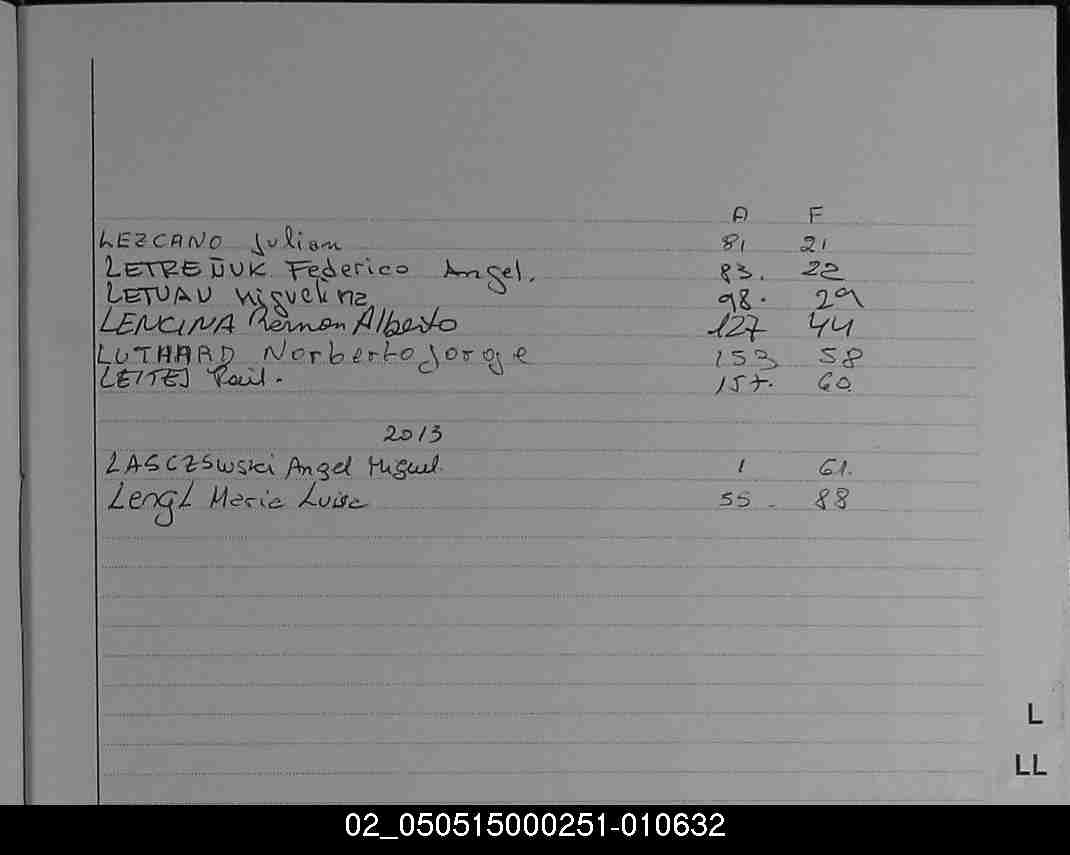 A F
LEZCANO Julian 81 21
LETREÑUK Federico Angel. 83. 22
LETUAU 98. 29
LENCINA Ramon Alberto 127 44
LUTHARD Norberto Jorge 153 58
LEITES Raul. 157. 60.
2013
LASCZSWSKI Angel Miguel. 1 61.
LENGL Maria Luisa 55 - 88
L
LL
02_050515000251-010632